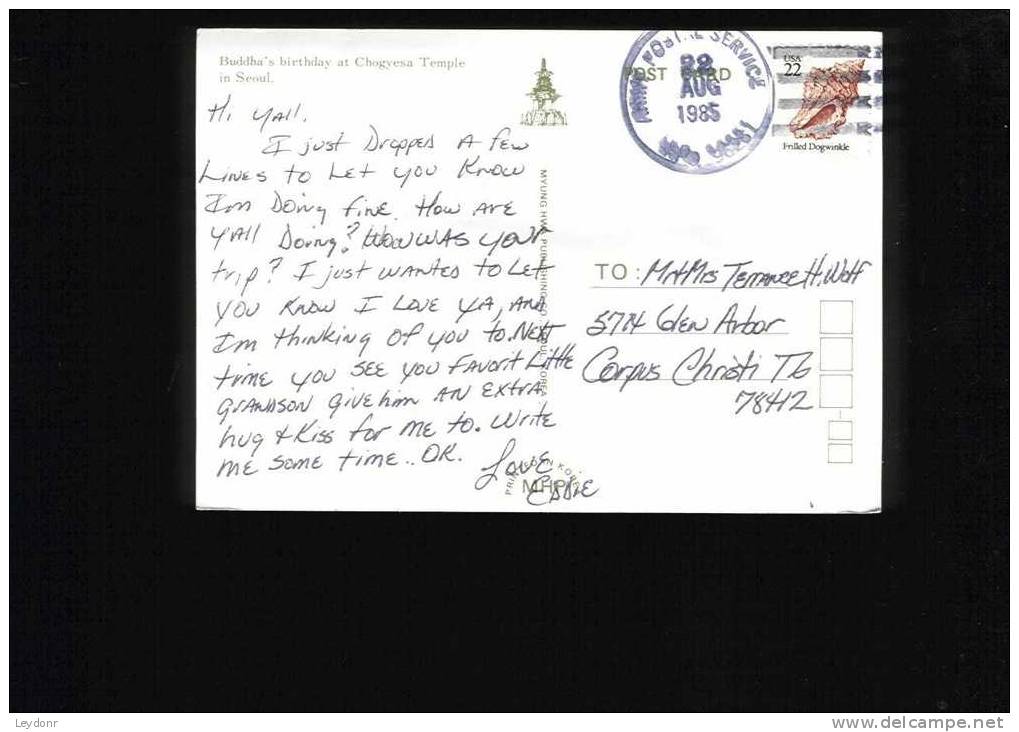 Buddha's birthday at Chogyesa Temple
in Seoul.
Hi Yall.
I just Dropped A few
Lines to Let you Know
Im Doing fine. How Are
Yall Doing? How WAS your
trip? I just wanted to Let
you Know I Love YA, And
Im thinking of you to. Next
time you see you favorit Little
grandson give him an extra
hug + Kiss for me to. Write
me some time.. OK.
Love
Eddie
MYUNG HWA PUBLISHING CO. SEOUL KOREA.
PRINTED IN KOREA
MHPC
POST CARD
POSTAL SERVICE
22
AUG
1985
USA
22
Frilled Dogwinkle
TO : Mr + Mrs Terrance H. Wolf
5714 Glen Arbor
Corpus Christi TX
78412
Leydonr
www.delcampe.net